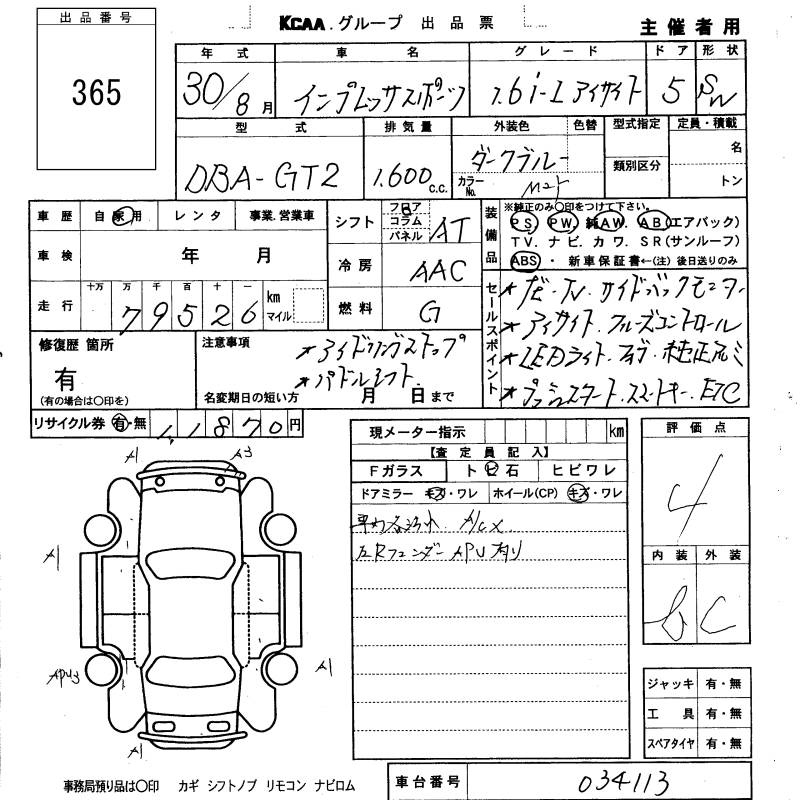 出品番号
365
KCAA.グループ 出品票
主催者用
年式 車名 グレード ドア 形状
30/8月 インプレッサスポーツ 1.6i-L アイサイト 5 SW
型式 排気量 外装色 色替 型式指定 定員・積載
DBA-GT2 1.600 c.c. ダークブルー
カラーNo.
類別区分
名
トン
車歴 自家用 レンタ 事業.営業車
車検 年 月
走行 十万 万 千 百 十 一
79526 km マイル
シフト フロア コラム パネル AT
冷房 AAC
燃料 G
装備品
※純正のみ○印をつけて下さい。
PS. PW. 純AW. AB(エアバック)
TV. ナビ. カワ. SR(サンルーフ)
ABS・ 新車保証書←(注)後日送りのみ
セールスポイント
★ナビ・TV・サイドバックモニター
★アイサイト・クルーズコントロール
★LEDライト・フォグ・純正アルミ
★プッシュスタート・スマートキー・ETC
修復歴 箇所
有
(有の場合は○印を)
注意事項
★アイドリングストップ
★パドルシフト
名変期日の短い方 月 日まで
リサイクル券 有・無 11870円
現メーター指示 km
【査定員記入】
Fガラス トビ石 ヒビワレ
ドアミラー キズ・ワレ ホイール(CP) キズ・ワレ
A/C×
左Rフェンダー APU有り
評価点
4
内装 外装
b C
A1
A3
A1
APU3
A1
A1
ジャッキ 有・無
工具 有・無
スペアタイヤ 有・無
事務局預り品は○印 カギ シフトノブ リモコン ナビロム
車台番号 034113